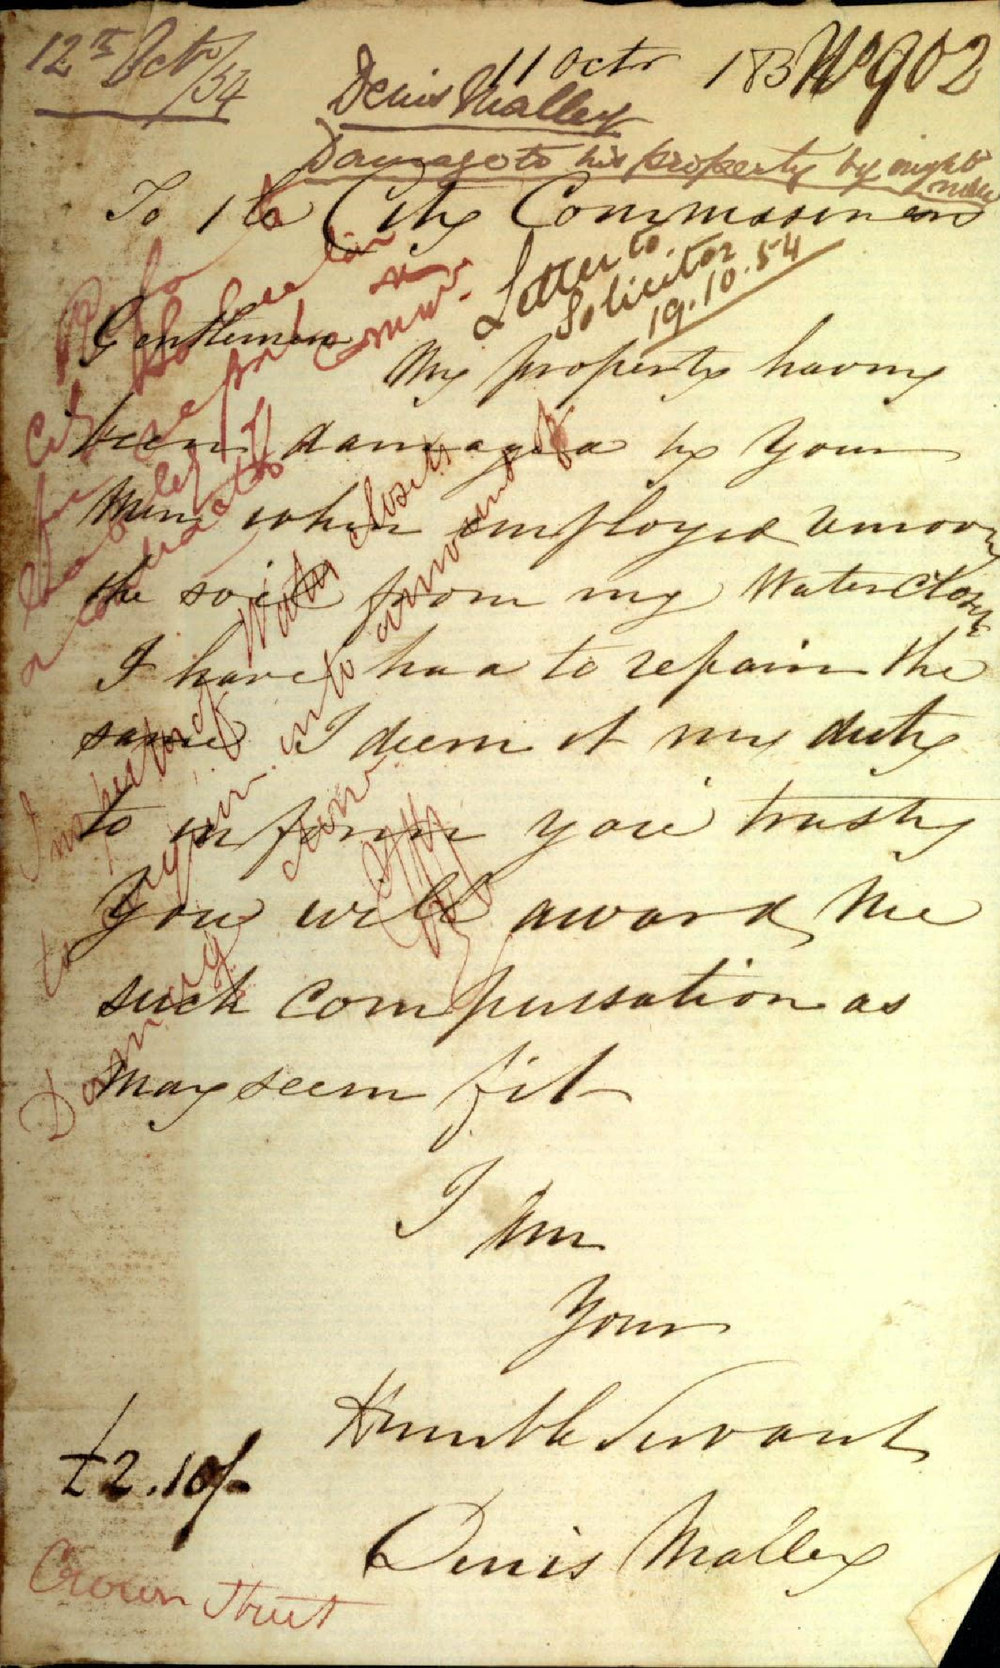 12th Octr/54
11 Octr 185
No 902
Denis Malley
Damage to his property by night men
To the City Commissioners
Letter to
Solicitor
19.10.54
Gentlemen
My property having
been damaged by your
Men when employed remov
the soil from my Water Closets
I have had to repair the
same I deem it my duty
to inform you trusting
You will award Me
such compensation as
May seem fit
I Am
Your
Humble Servant
Denis Malley
£2.10/-
Crown Street
Inspector of Water Closets
to inquire into amount of
Damage done